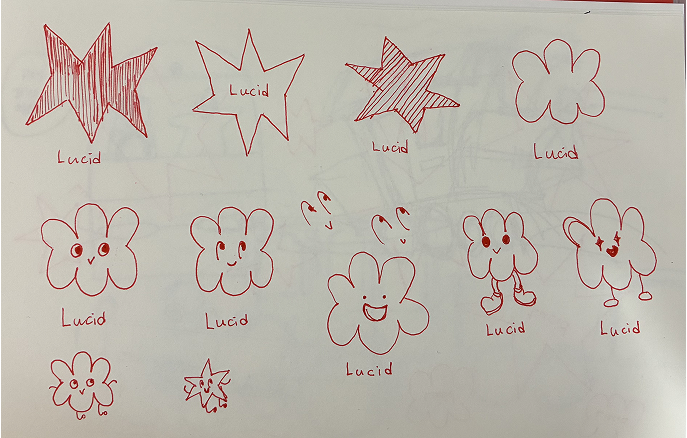 Lucid
Lucid
Lucid
Lucid
Lucid
Lucid
Lucid
Lucid
Lucid